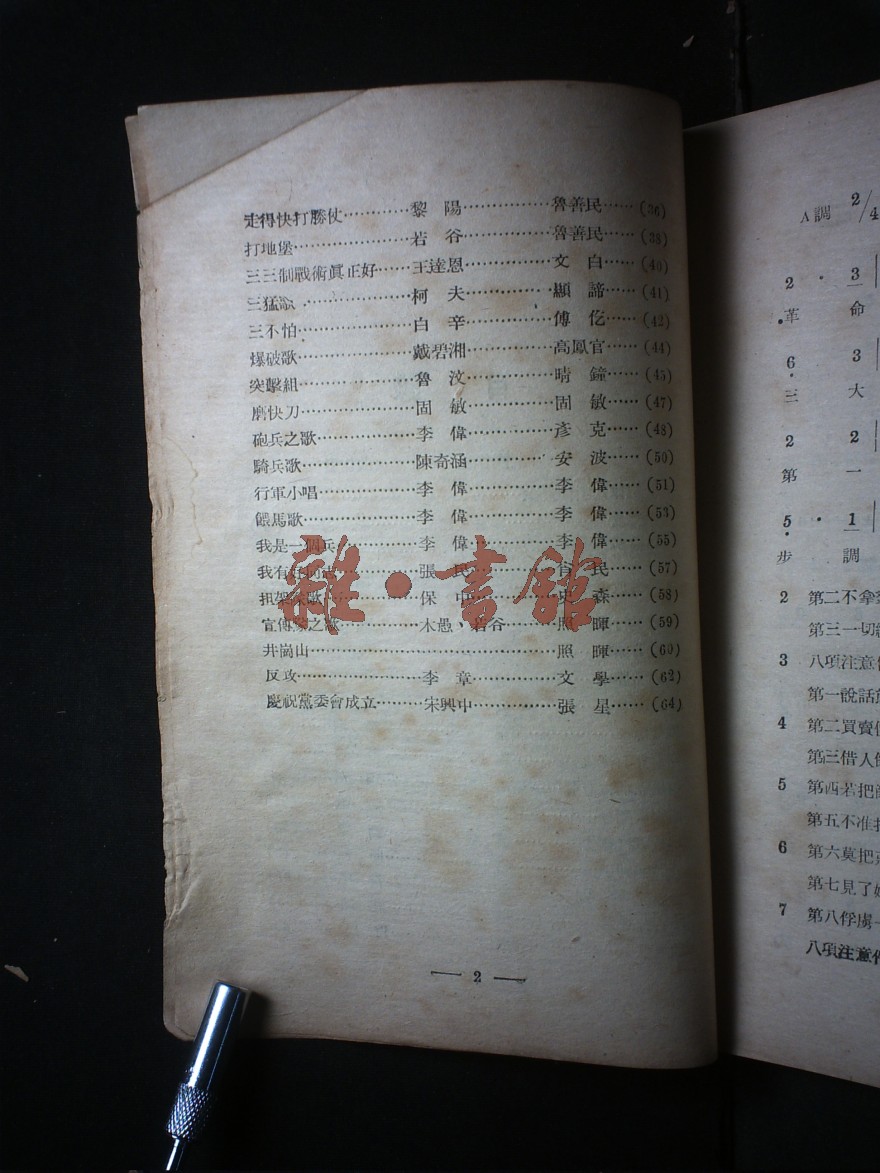 走得快打勝仗…………黎 陽……………魯善民……(36)
打地堡………………若 谷……………魯善民……(38)
三三制戰術眞正好……王達恩……………文 白……(40)
三猛歌………………柯 夫……………顯 諦……(41)
三不怕………………白 辛……………傅 仡……(42)
爆破歌………………戴碧湘……………高鳳官……(44)
突擊組………………魯 汶……………晴 鐘……(45)
磨快刀………………固 敏……………固 敏……(47)
砲兵之歌……………李 偉……………彥 克……(48)
騎兵歌………………陳奇涵……………安 波……(50)
行軍小唱……………李 偉……………李 偉……(51)
餵馬歌………………李 偉……………李 偉……(53)
我是一個兵…………李 偉……………李 偉……(55)
我有…………張 民……………民……(57)
歌……………保 中……………森……(58)
宣傳隊之歌…………木愚、若谷………照 暉……(59)
井崗山……………………………………照 暉……(60)
反攻…………………李 章……………文 學……(62)
慶祝黨委會成立……宋興中……………張 星……(64)
— 2 —
雜·書館
A調 2/4
2 · 3
革 命
6 3
三 大
2 2
第 一
5 · 1
步 調
2 第二不拿
第三一切
3 八項注意
第一說話
4 第二買賣
第三借人
5 第西若把
第五不准
6 第六莫把
第七見了
7 第八俘虜
八項注意